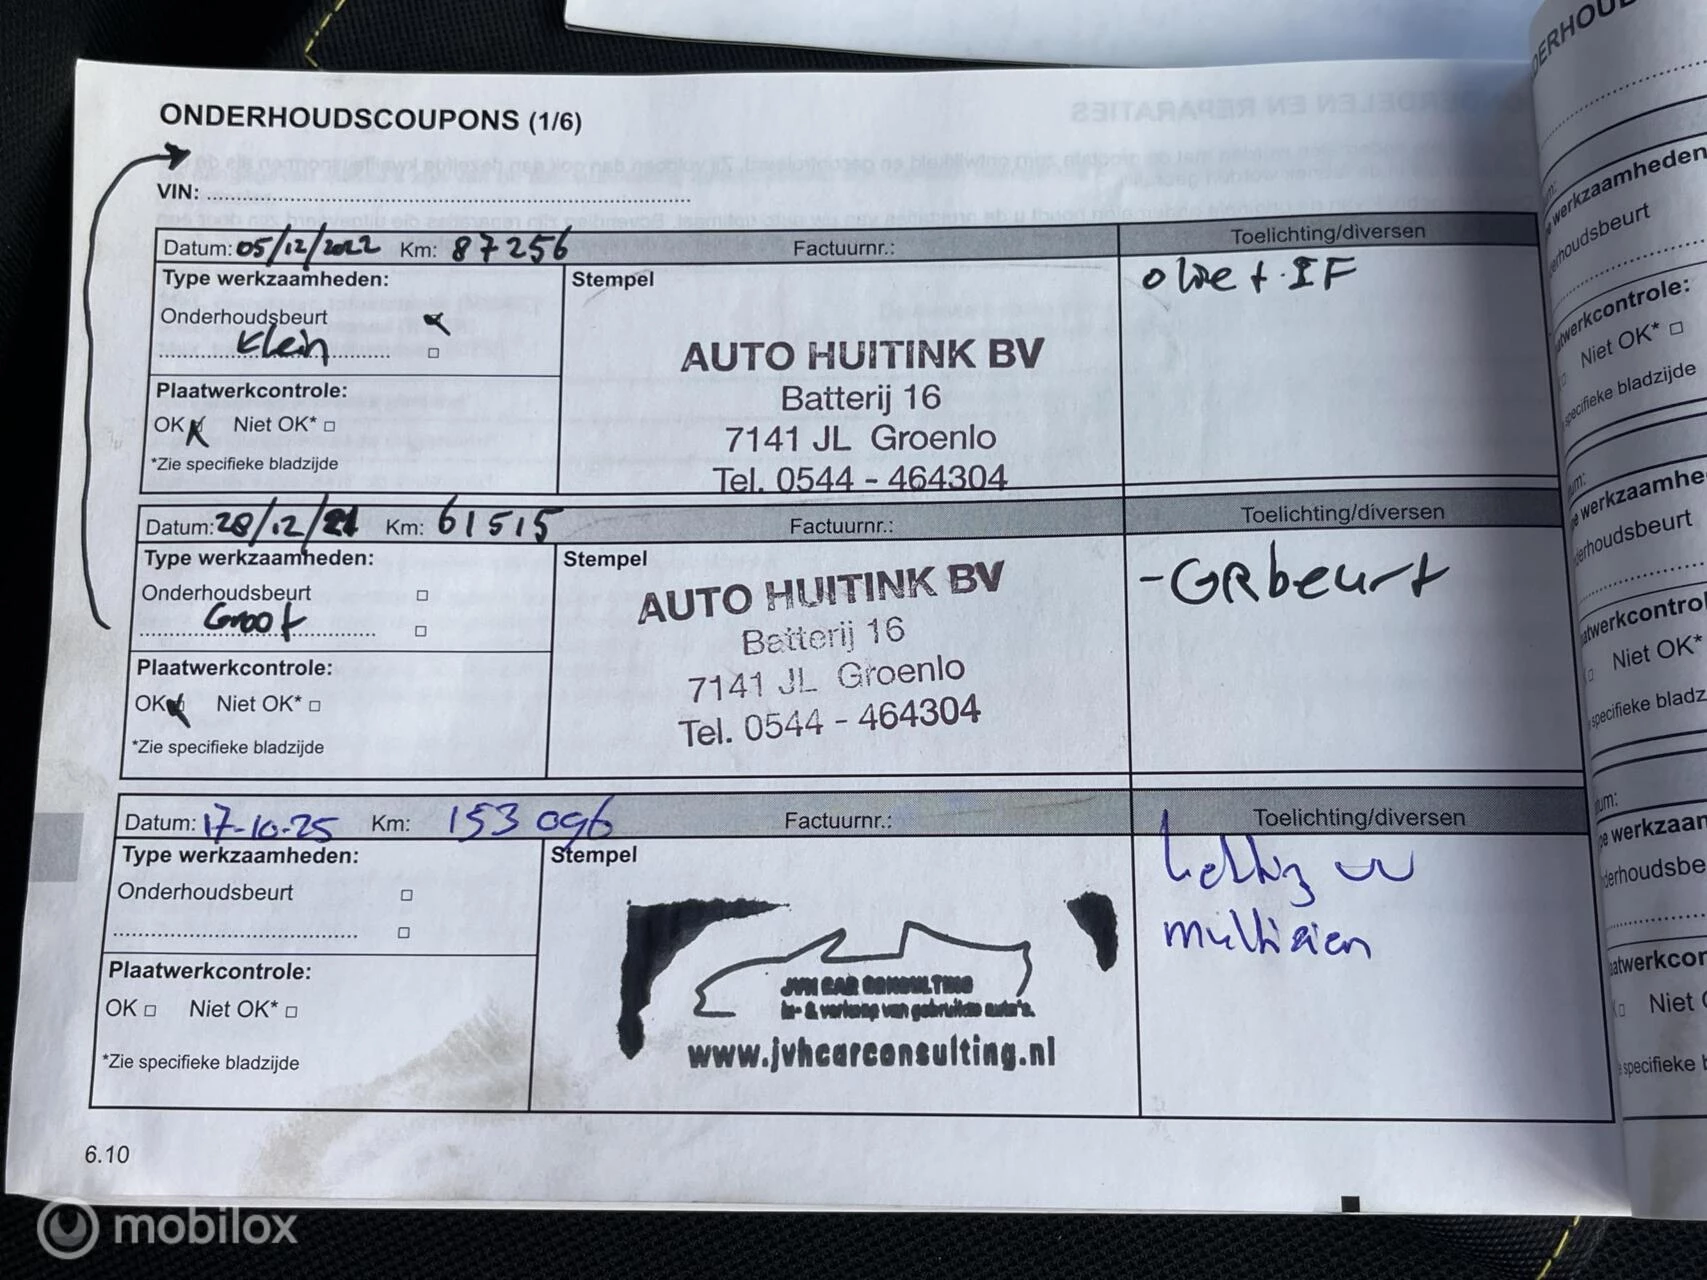 ONDERHOUDSCOUPONS (1/6)
VIN:
Datum: 05/12/2022 Km: 87256 Factuurnr.: Toelichting/diversen
Type werkzaamheden: Stempel olie + IF
Onderhoudsbeurt
Klein
AUTO HUITINK BV
Batterij 16
7141 JL Groenlo
Tel. 0544 - 464304
Plaatwerkcontrole:
OK Niet OK*
*Zie specifieke bladzijde
Datum: 28/12/21 Km: 61515 Factuurnr.: Toelichting/diversen
Type werkzaamheden: Stempel -GRbeurt
Onderhoudsbeurt
Groot
AUTO HUITINK BV
Batterij 16
7141 JL Groenlo
Tel. 0544 - 464304
Plaatwerkcontrole:
OK Niet OK*
*Zie specifieke bladzijde
Datum: 17-10-25 Km: 153 096 Factuurnr.: Toelichting/diversen
Type werkzaamheden: Stempel
Onderhoudsbeurt
multirien
JVH CAR CONSULTING
in- & verkoop van gebruikte auto's.
www.jvhcarconsulting.nl
Plaatwerkcontrole:
OK Niet OK*
*Zie specifieke bladzijde
6.10
mobilox